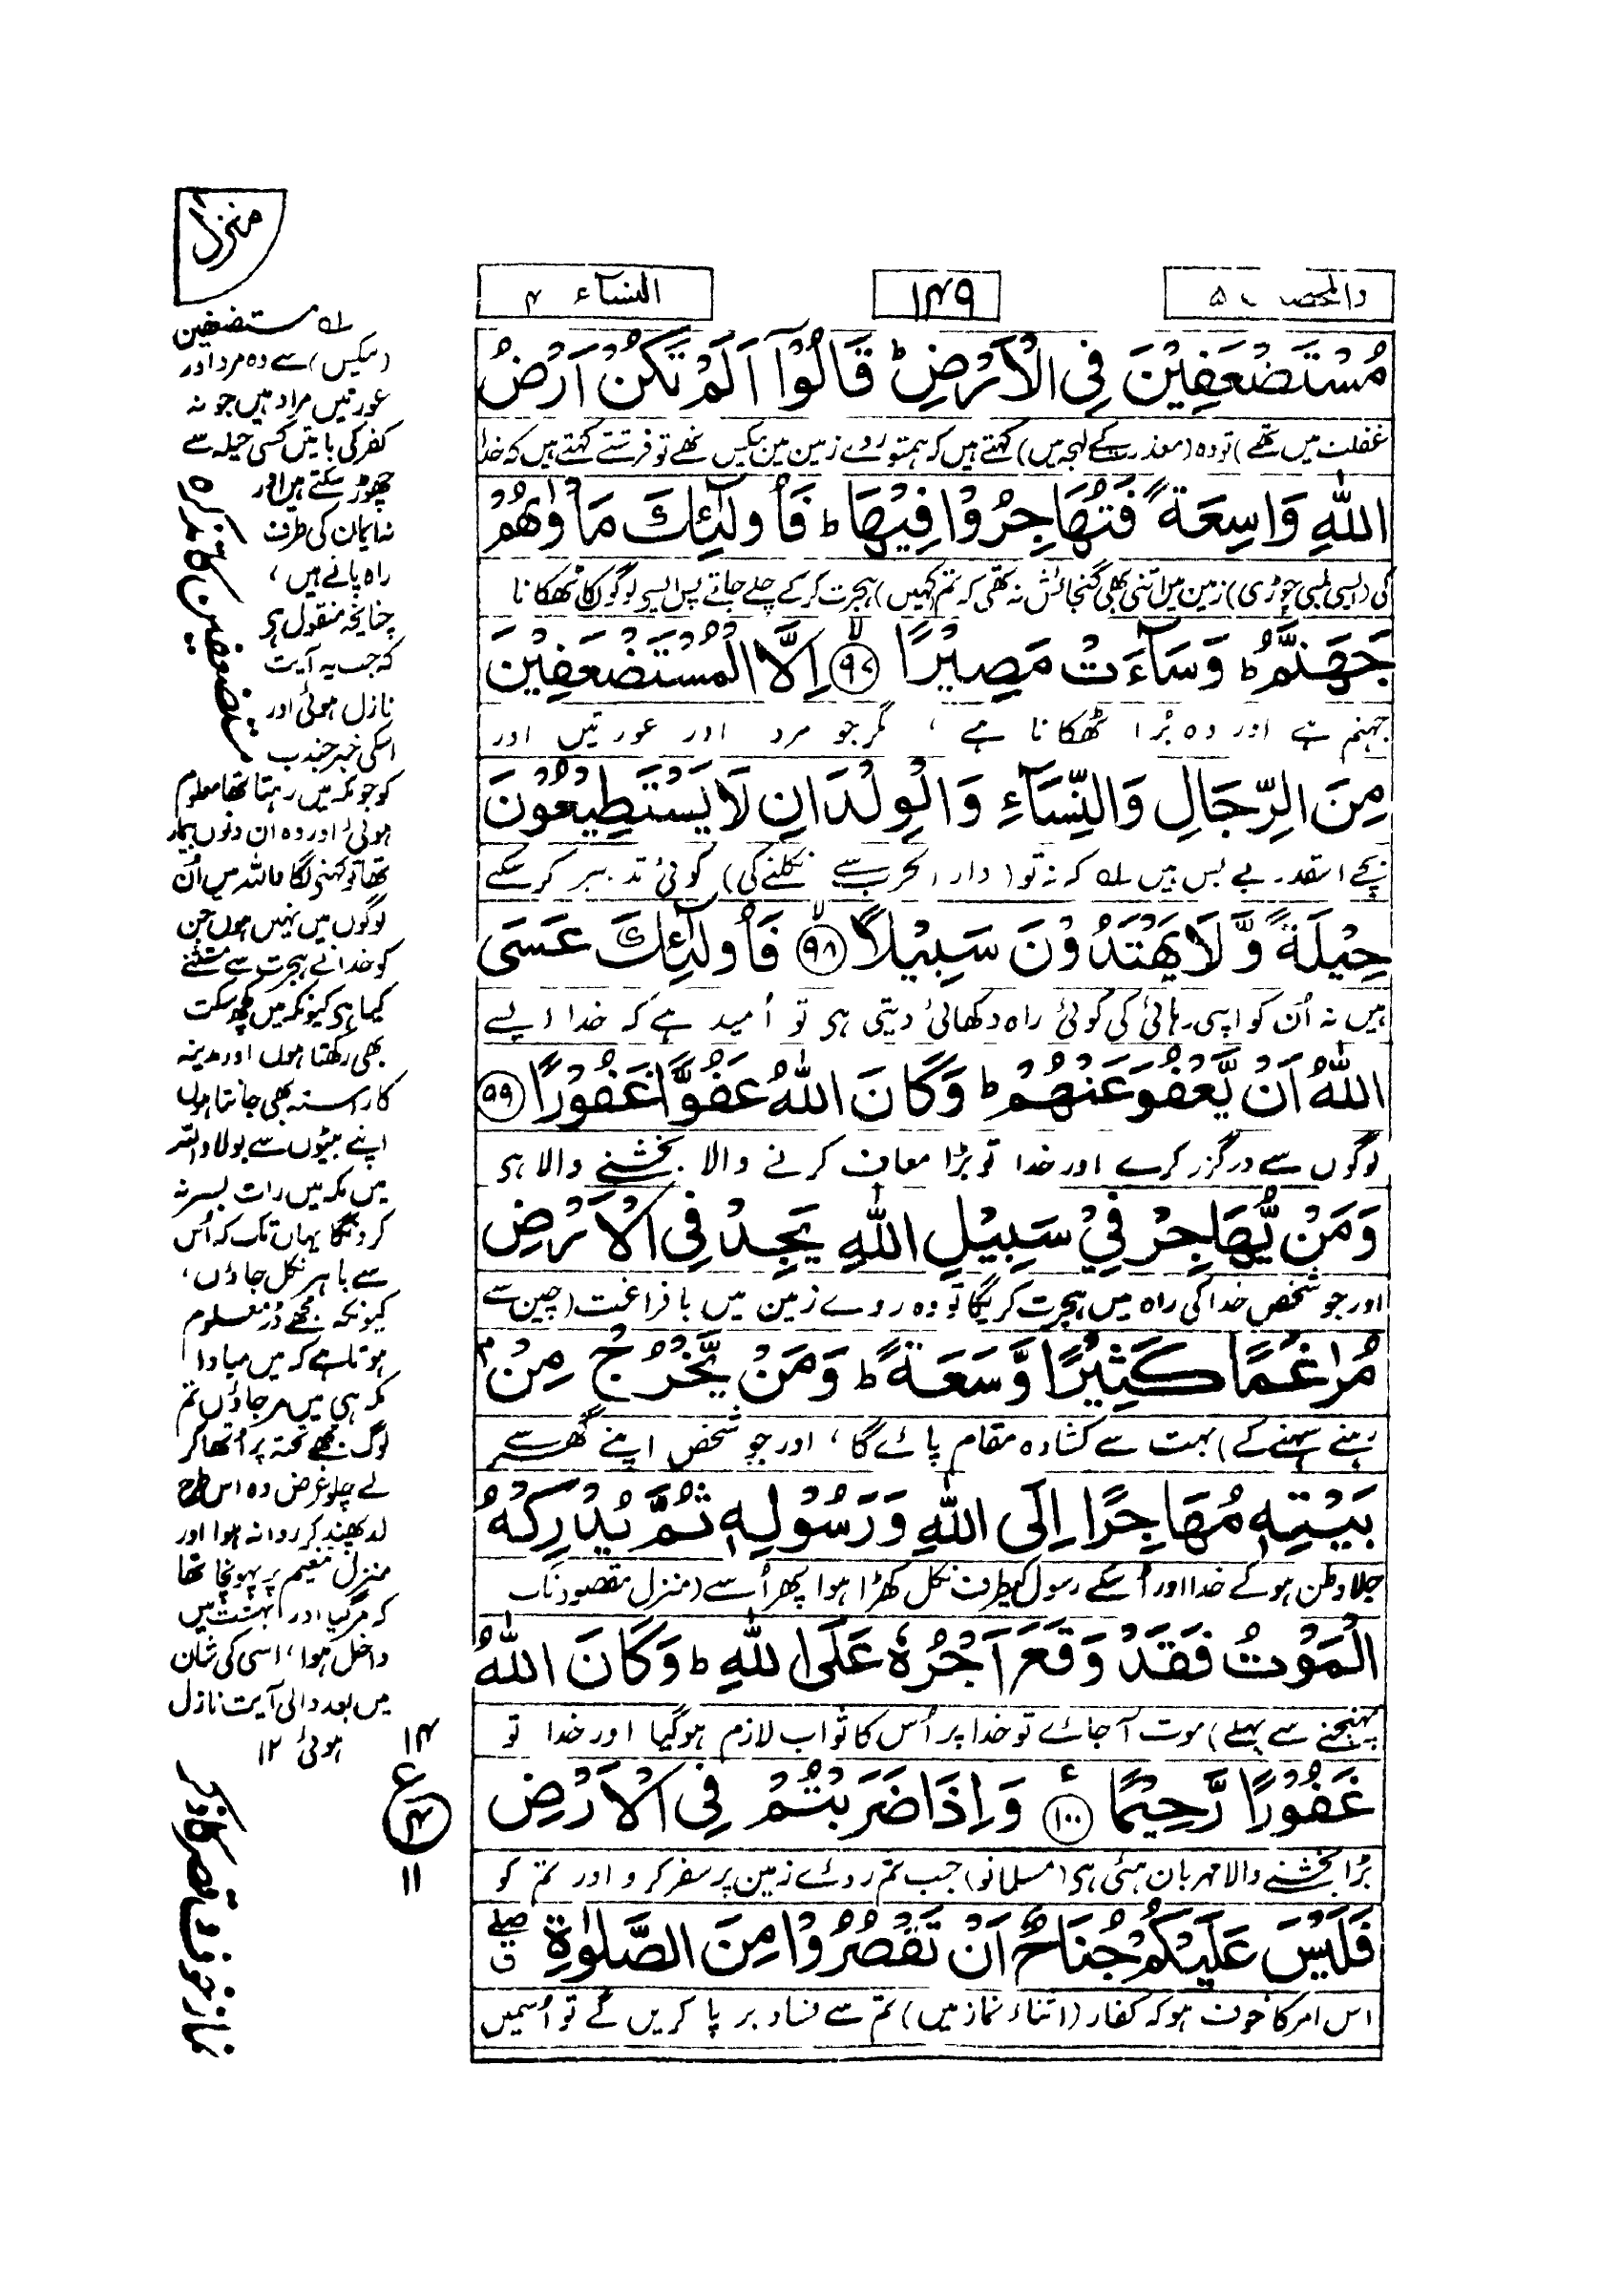 والمحصنٰت ۵
۱۴۹
النساء ۴
مُسْتَضْعَفِيْنَ فِى الْاَرْضِ ؕ قَالُوْۤا اَلَمْ تَكُنْ اَرْضُ
غفلت میں تھے) تو وہ (معذرت کے لہجہ میں) کہتے ہیں کہ ہم تو روے زمین میں بیکس تھے تو فرشتے کہتے ہیں کہ خدا
اللّٰهِ وَاسِعَةً فَتُهَاجِرُوْا فِيْهَا ؕ فَاُولٰٓئِكَ مَاْوٰىهُمْ
کی (ایسی لمبی چوڑی) زمین میں اتنی بھی گنجائش نہ تھی کہ تم (کہیں) ہجرت کر کے چلے جاتے پس ایسے لوگوں کا ٹھکانا
جَهَنَّمُ ؕ وَسَآءَتْ مَصِيْرًا ۙ ﴿۹۷﴾ اِلَّا الْمُسْتَضْعَفِيْنَ
جہنم ہے اور وہ بُرا ٹھکانا ہے ، مگر جو مرد اور عورتیں اور
مِنَ الرِّجَالِ وَالنِّسَآءِ وَالْوِلْدَانِ لَا يَسْتَطِيْعُوْنَ
بچے اسقدر بے بس ہیں ۱؎ کہ نہ تو (دار الحرب سے نکلنے کی) کوئی تدبیر کر سکتے
حِيْلَةً وَّلَا يَهْتَدُوْنَ سَبِيْلًا ۙ ﴿۹۸﴾ فَاُولٰٓئِكَ عَسَى
ہیں نہ اُن کو اپنی رہائی کی کوئی راہ دکھائی دیتی ہی تو اُمید ہے کہ خدا ایسے
اللّٰهُ اَنْ يَّعْفُوَ عَنْهُمْ ؕ وَكَانَ اللّٰهُ عَفُوًّا غَفُوْرًا ﴿۹۹﴾
لوگوں سے درگزر کرے اور خدا تو بڑا معاف کرنے والا بخشنے والا ہی
وَمَنْ يُّهَاجِرْ فِيْ سَبِيْلِ اللّٰهِ يَجِدْ فِى الْاَرْضِ
اور جو شخص خدا کی راہ میں ہجرت کریگا تو وہ روے زمین میں با فراغت (چین سے
مُرٰغَمًا كَثِيْرًا وَّسَعَةً ؕ وَمَنْ يَّخْرُجْ مِنْۢ
رہنے سہنے کے) بہت سے کشادہ مقام پائے گا ، اور جو شخص اپنے گھر سے
بَيْتِهٖ مُهَاجِرًا اِلَى اللّٰهِ وَرَسُوْلِهٖ ثُمَّ يُدْرِكْهُ
جلا وطن ہو کے خدا اور اُسکے رسول کیطرف نکل کھڑا ہوا پھر اُسے (منزل مقصود تک
الْمَوْتُ فَقَدْ وَقَعَ اَجْرُهٗ عَلَى اللّٰهِ ؕ وَكَانَ اللّٰهُ
پہنچنے سے پہلے) موت آ جائے تو خدا پر اُس کا ثواب لازم ہو گیا اور خدا تو
غَفُوْرًا رَّحِيْمًا ۠ ﴿۱۰۰﴾ وَاِذَا ضَرَبْتُمْ فِى الْاَرْضِ
بڑا بخشنے والا مہربان ہئی ہی (مسلمانو) جب تم روئے زمین پر سفر کرو اور تم کو
فَلَيْسَ عَلَيْكُمْ جُنَاحٌ اَنْ تَقْصُرُوْا مِنَ الصَّلٰوةِ ۖ ق
اس امر کا خوف ہو کہ کفار (اثناء نماز میں) تم سے فساد برپا کریں گے تو اُسمیں
منزل ۱
۱؎ مستضعفین
(بیکس) سے وہ مرد اور
عورتیں مراد ہیں جو نہ
کفر کی باتیں کسی حیلہ سے
چھوڑ سکتے ہیں اور
نہ ایمان کی طرف
راہ پاتے ہیں ،
چنانچہ منقول ہی
کہ جب یہ آیت
نازل ہوئی اور
اسکی خبر جندب
کو جو مکہ میں رہتا تھا معلوم
ہوئی اور وہ ان دنوں بیمار
تھا تو کہنے لگا واللہ میں اُن
لوگوں میں نہیں ہوں جن
کو خدا نے ہجرت سے مستثنے
کیا ہی کیونکہ میں کچھ سکت
بھی رکھتا ہوں اور مدینہ
کا راستہ بھی جانتا ہوں
اپنے بیٹوں سے بولا واللہ
میں مکہ میں رات بسر نہ
کرونگا یہاں تک کہ اُس
سے باہر نکل جاؤں ،
کیونکہ مجھے ڈر معلوم
ہوتا ہے کہ میں مبادا
مکہ ہی میں مر جاؤں تم
لوگ مجھے تختہ پر اُٹھا کر
لے چلو غرض وہ اس طرح
لد پھند کر روانہ ہوا اور
منزل تنعیم پر پہونچا تھا
کہ مر گیا اور بہشت میں
داخل ہوا ، اسی کی شان
میں بعد والی آیت نازل
ہوئی ۱۲
مستضعفین کا تذکرہ
۱۴
ع
۴
۱۱
نماز خوف و قصر کا ذکر